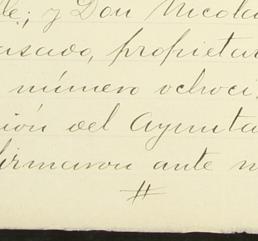 le; y Don Nicola
asado, propietar
número ochoci
ión del Ayunta
firmaron ante m
#